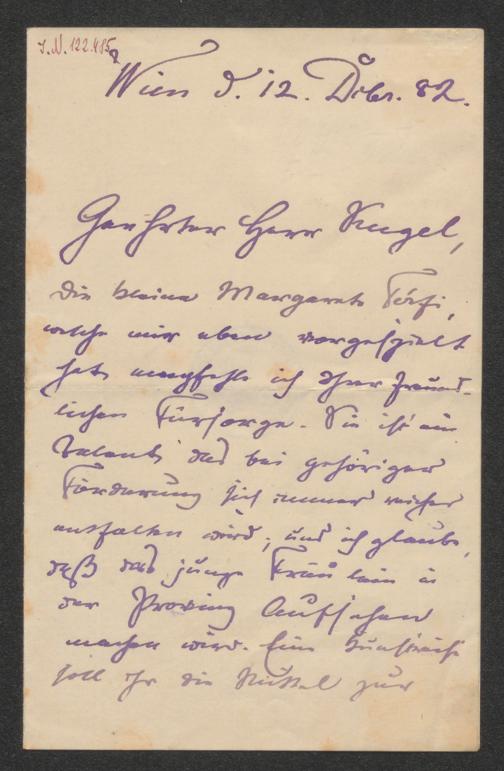 I.N. 122.485
Wien d. 12. Dcbr. 82.
Geehrter Herr Kugel,
die kleine Margarete
welche mir eben vorgespielt
hat, empfehle ich Ihrer freund-
lichen Fürsorge. Sie ist ein
Talent, das bei gehöriger
Förderung sich immer reicher
entfalten wird, und ich glaube,
daß das junge Fräulein in
der Provinz Aufsehen
machen wird. Eine Kunstreise
soll ihr die Mittel zur